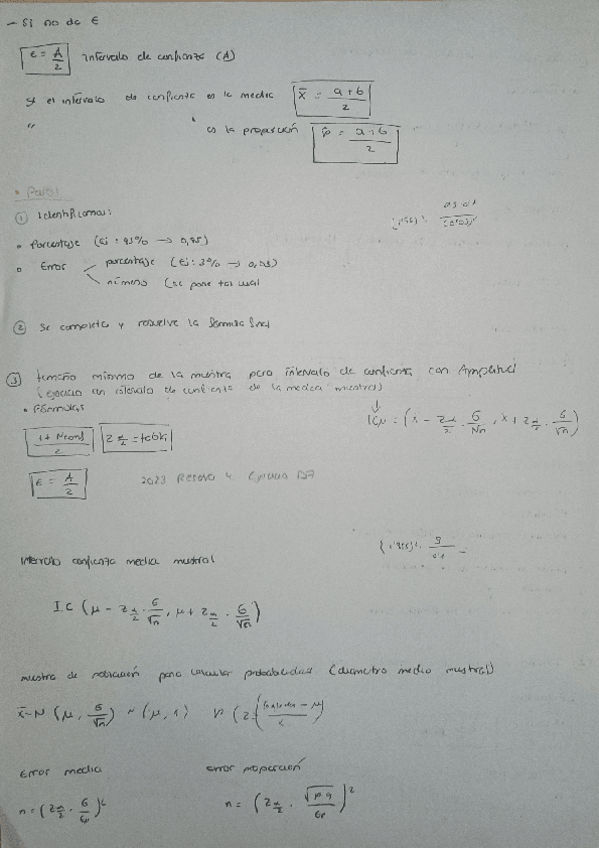 - Si no da E
E = A/2 Intervalo de confianza (A)
Si el intervalo de confianza es la media x̄ = a+b/2
" " es la proporción p̂ = a+b/2
① Identificamos:
• Porcentaje (Ej: 95% → 0,95)
• Error porcentaje (Ej: 3% → 0,03)
número (se pone tal cual
② Se completa y resuelve la fórmula final
③ tamaño mínimo de la muestra para intervalo de confianza con Amplitud
(ejercicio un intervalo de confianza de la media muestral)
• Fórmulas
ICμ = (x̄ - Zα/2 · σ/√n, x̄ + Zα/2 · σ/√n)
1+Nconf/2 Zα/2 = tabla
E = A/2 2023 Reserva 4 Ejercicio
Intervalo confianza media muestral
IC (μ - Zα/2 · σ/√n, μ + Zα/2 · σ/√n)
muestra de para calcular probabilidades (diámetro medio muestral)
x̄ ~ N (μ, σ/√n)
Error media
Error proporción
n = (Zα/2 · σ/E)²
n = (Zα/2 · √pq/E)²